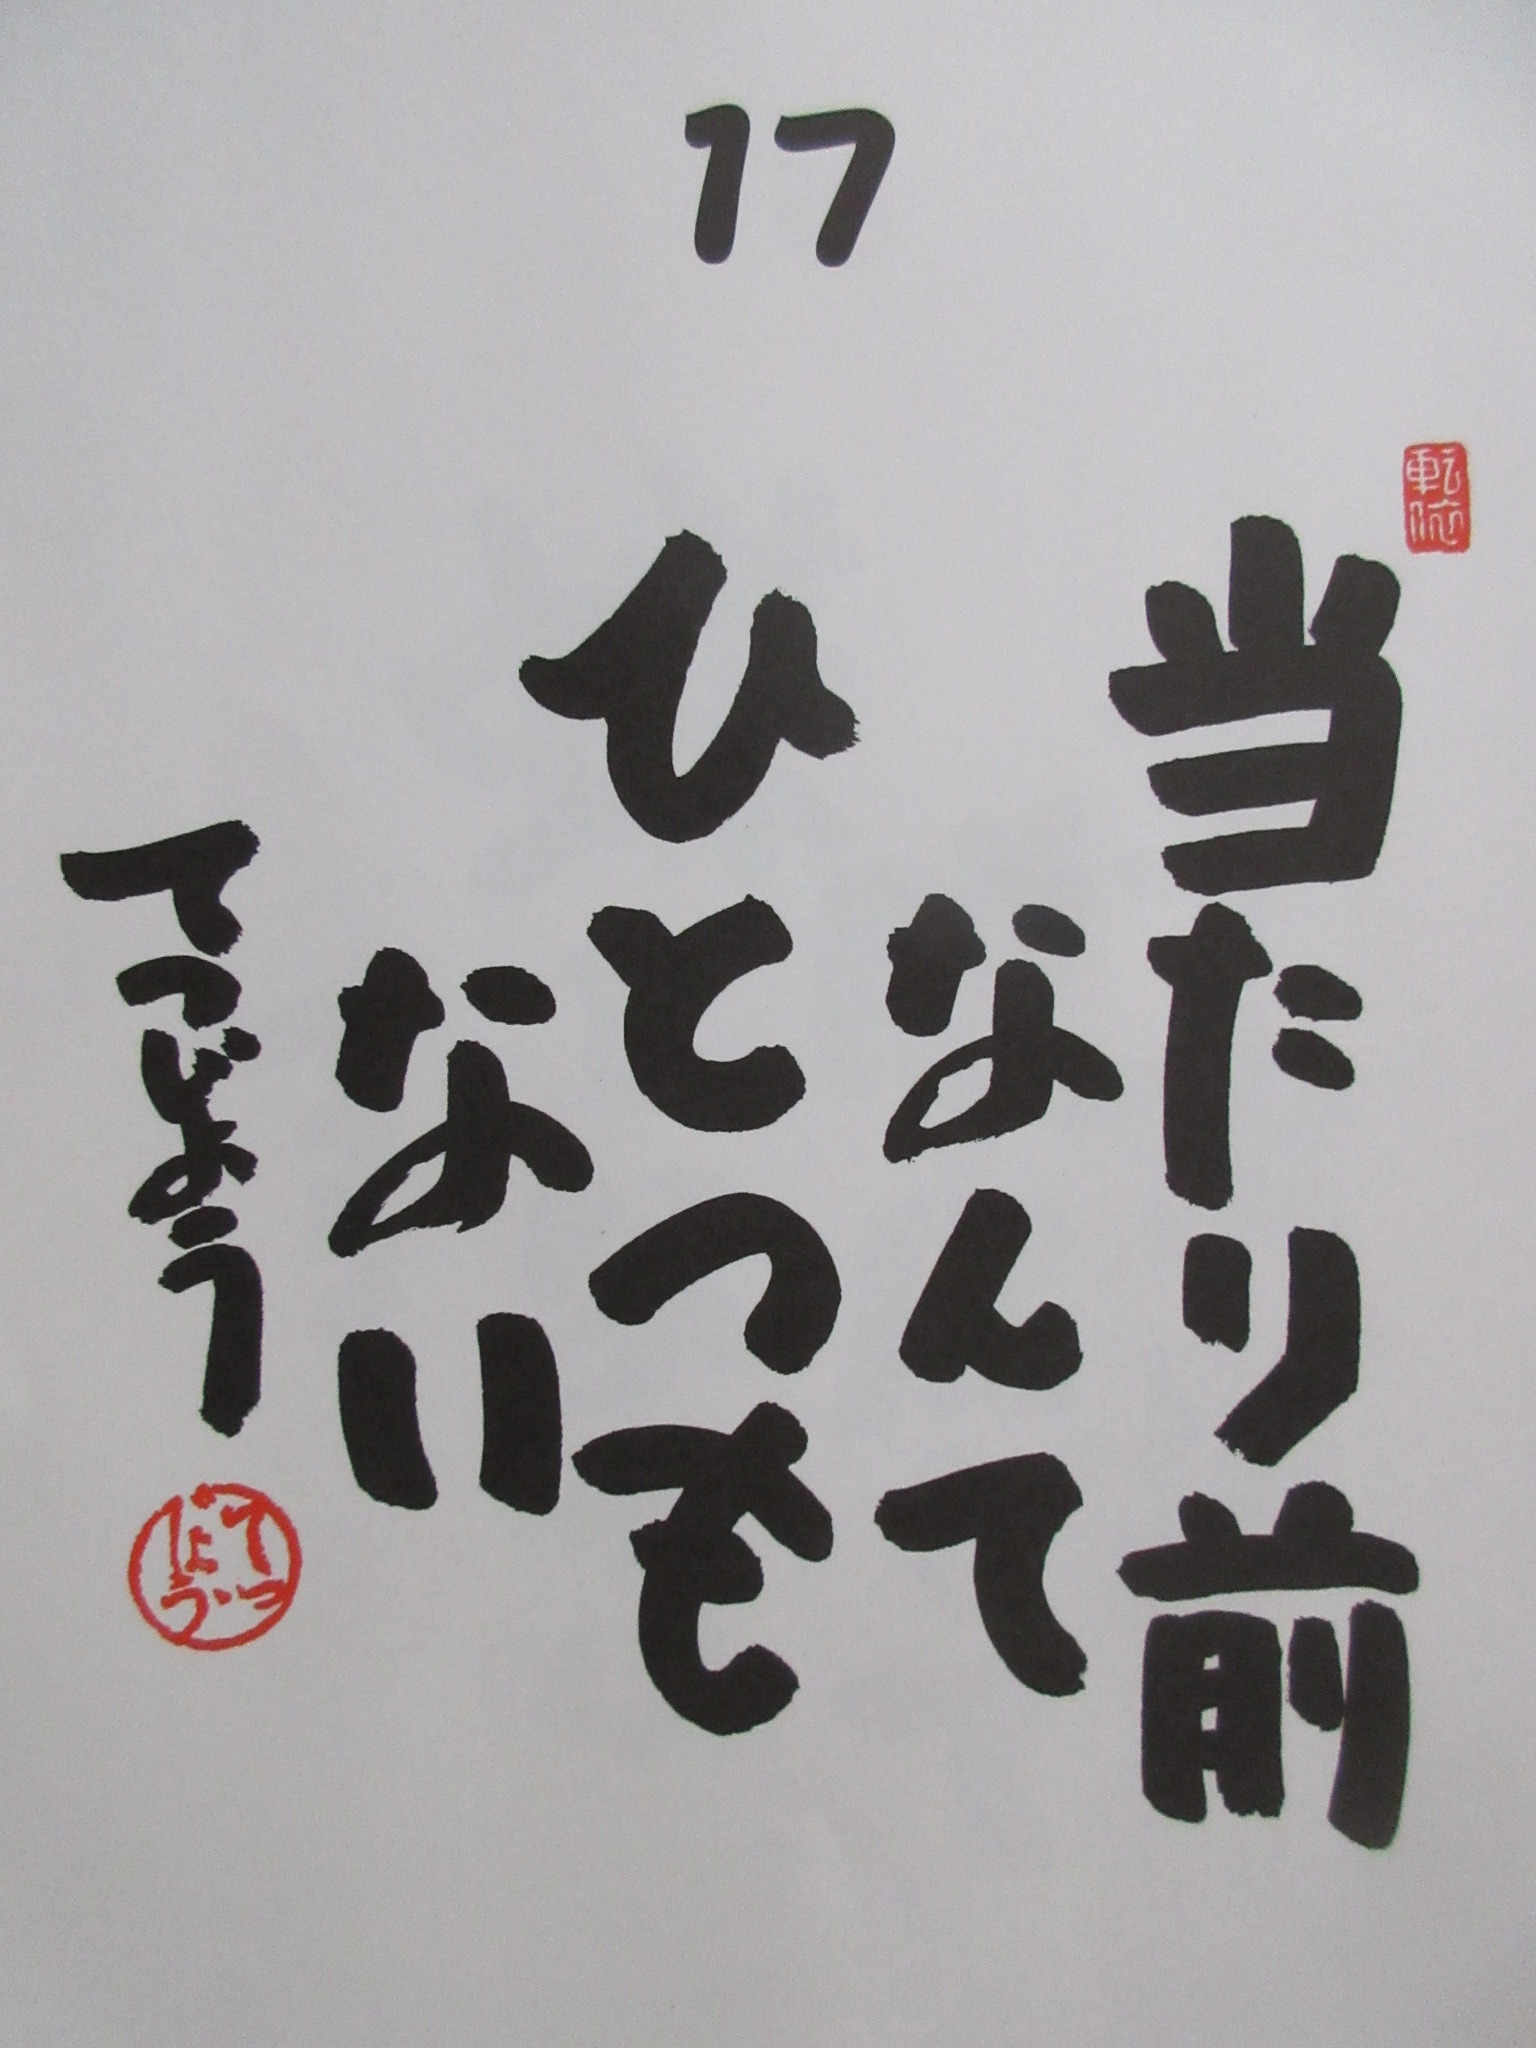 17
当たり前
なんて
ひとつも
ない
てつじょう
てつ
じょう